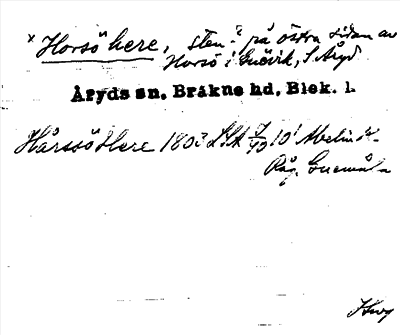 x Horsö here, sten? på östra sidan av
Horsö i Guövik, S. Åryd
Åryds sn, Bräkne hd, Blek. l.
Hårssö Here 1803 LSA 10¹ Abelin
Råg. Guemåla